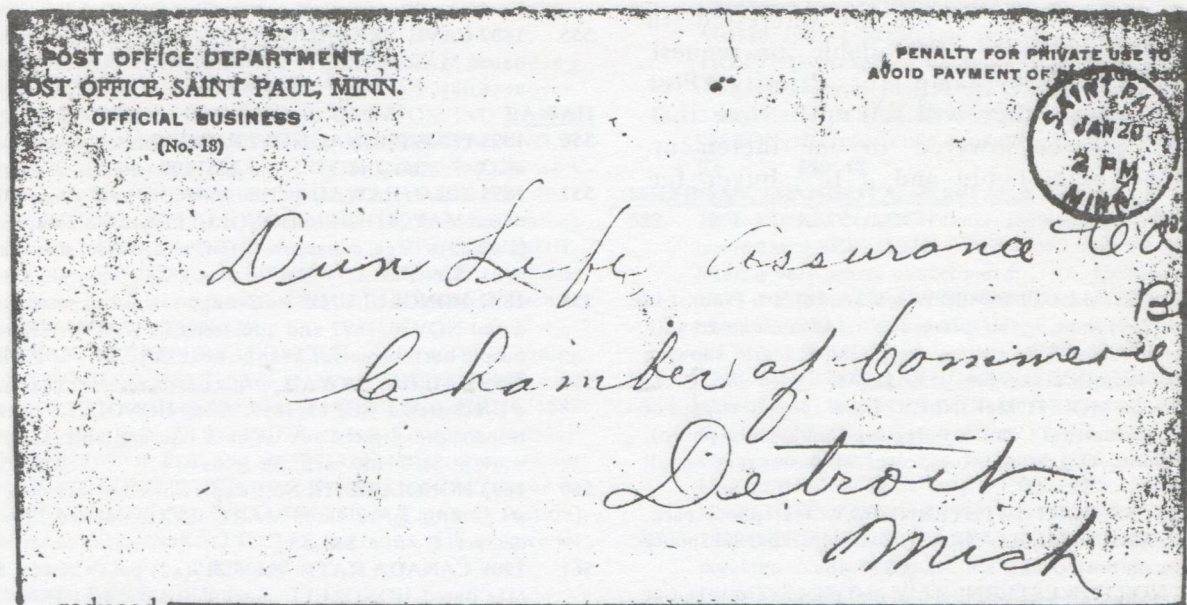 POST OFFICE DEPARTMENT
POST OFFICE, SAINT PAUL, MINN.
OFFICIAL BUSINESS
(No. 18)
PENALTY FOR PRIVATE USE TO
AVOID PAYMENT OF
SAINT PAUL
JAN 20
2 PM
MINN.
Sun Life Assurance Co
Chamber of Commerce B
Detroit
Mich
reduced